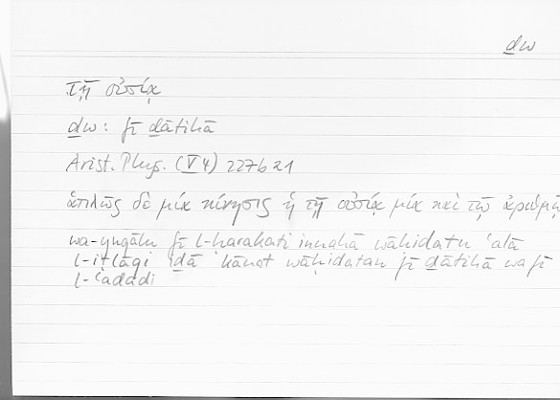 ḏw
τῇ οὐσίᾳ
ḏw: fī ḏātihā
Arist. Phys. (V 4) 227b21
ἁπλῶς δὲ μία κίνησις ἡ τῇ οὐσίᾳ μία καὶ τῷ ἀριθμῷ
wa-yuqālu fī l-ḥarakati innahā wāḥidatun ʿalā
l-iṭlāqi iḏā kānat wāḥidatan fī ḏātihā wa-fī
l-ʿadadi